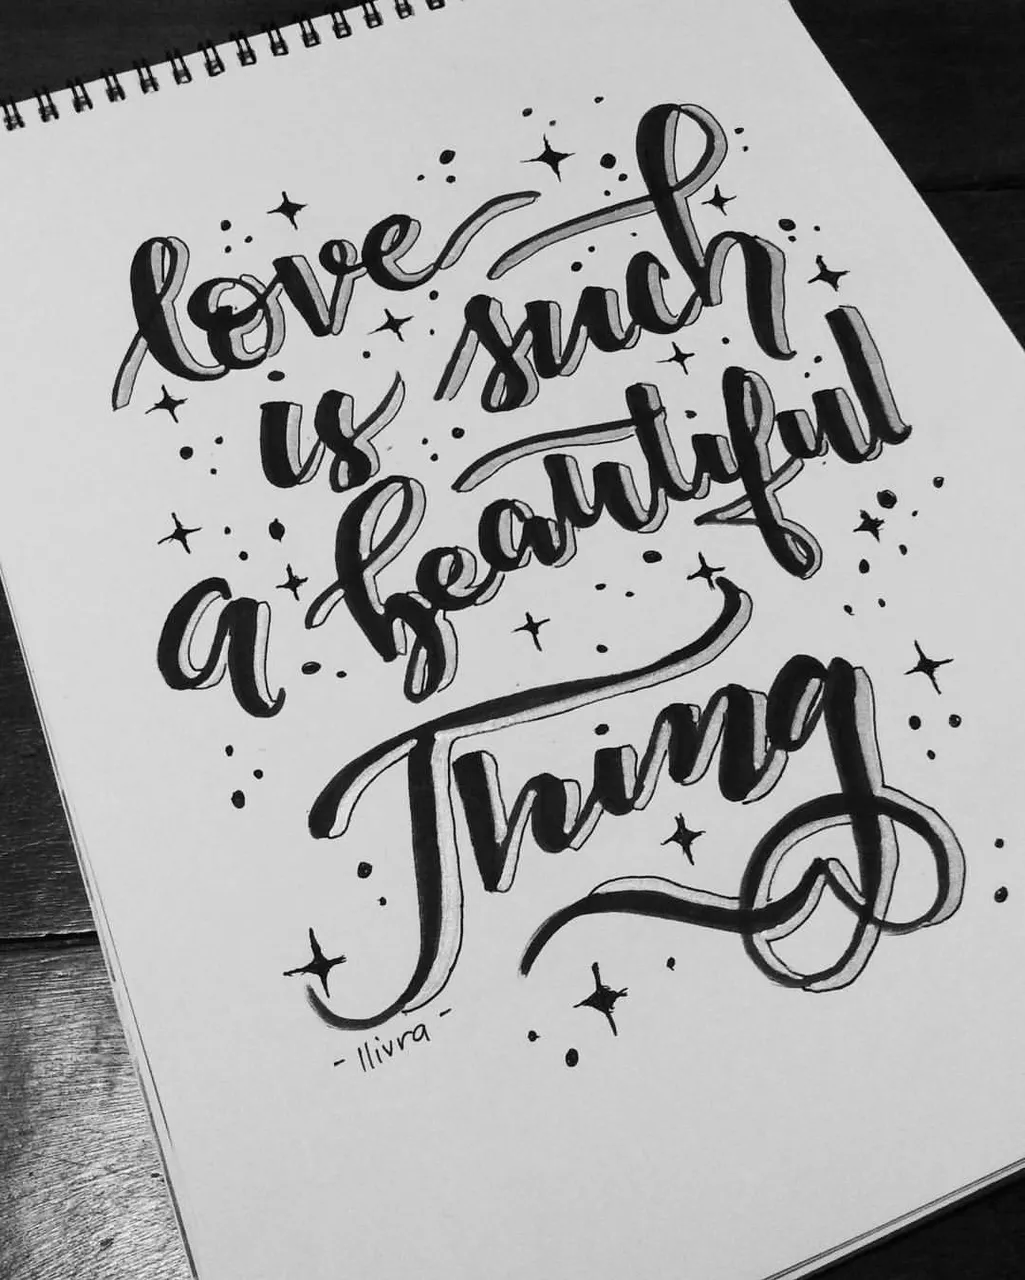 love
is such
a beautiful
Thing
- llivra -